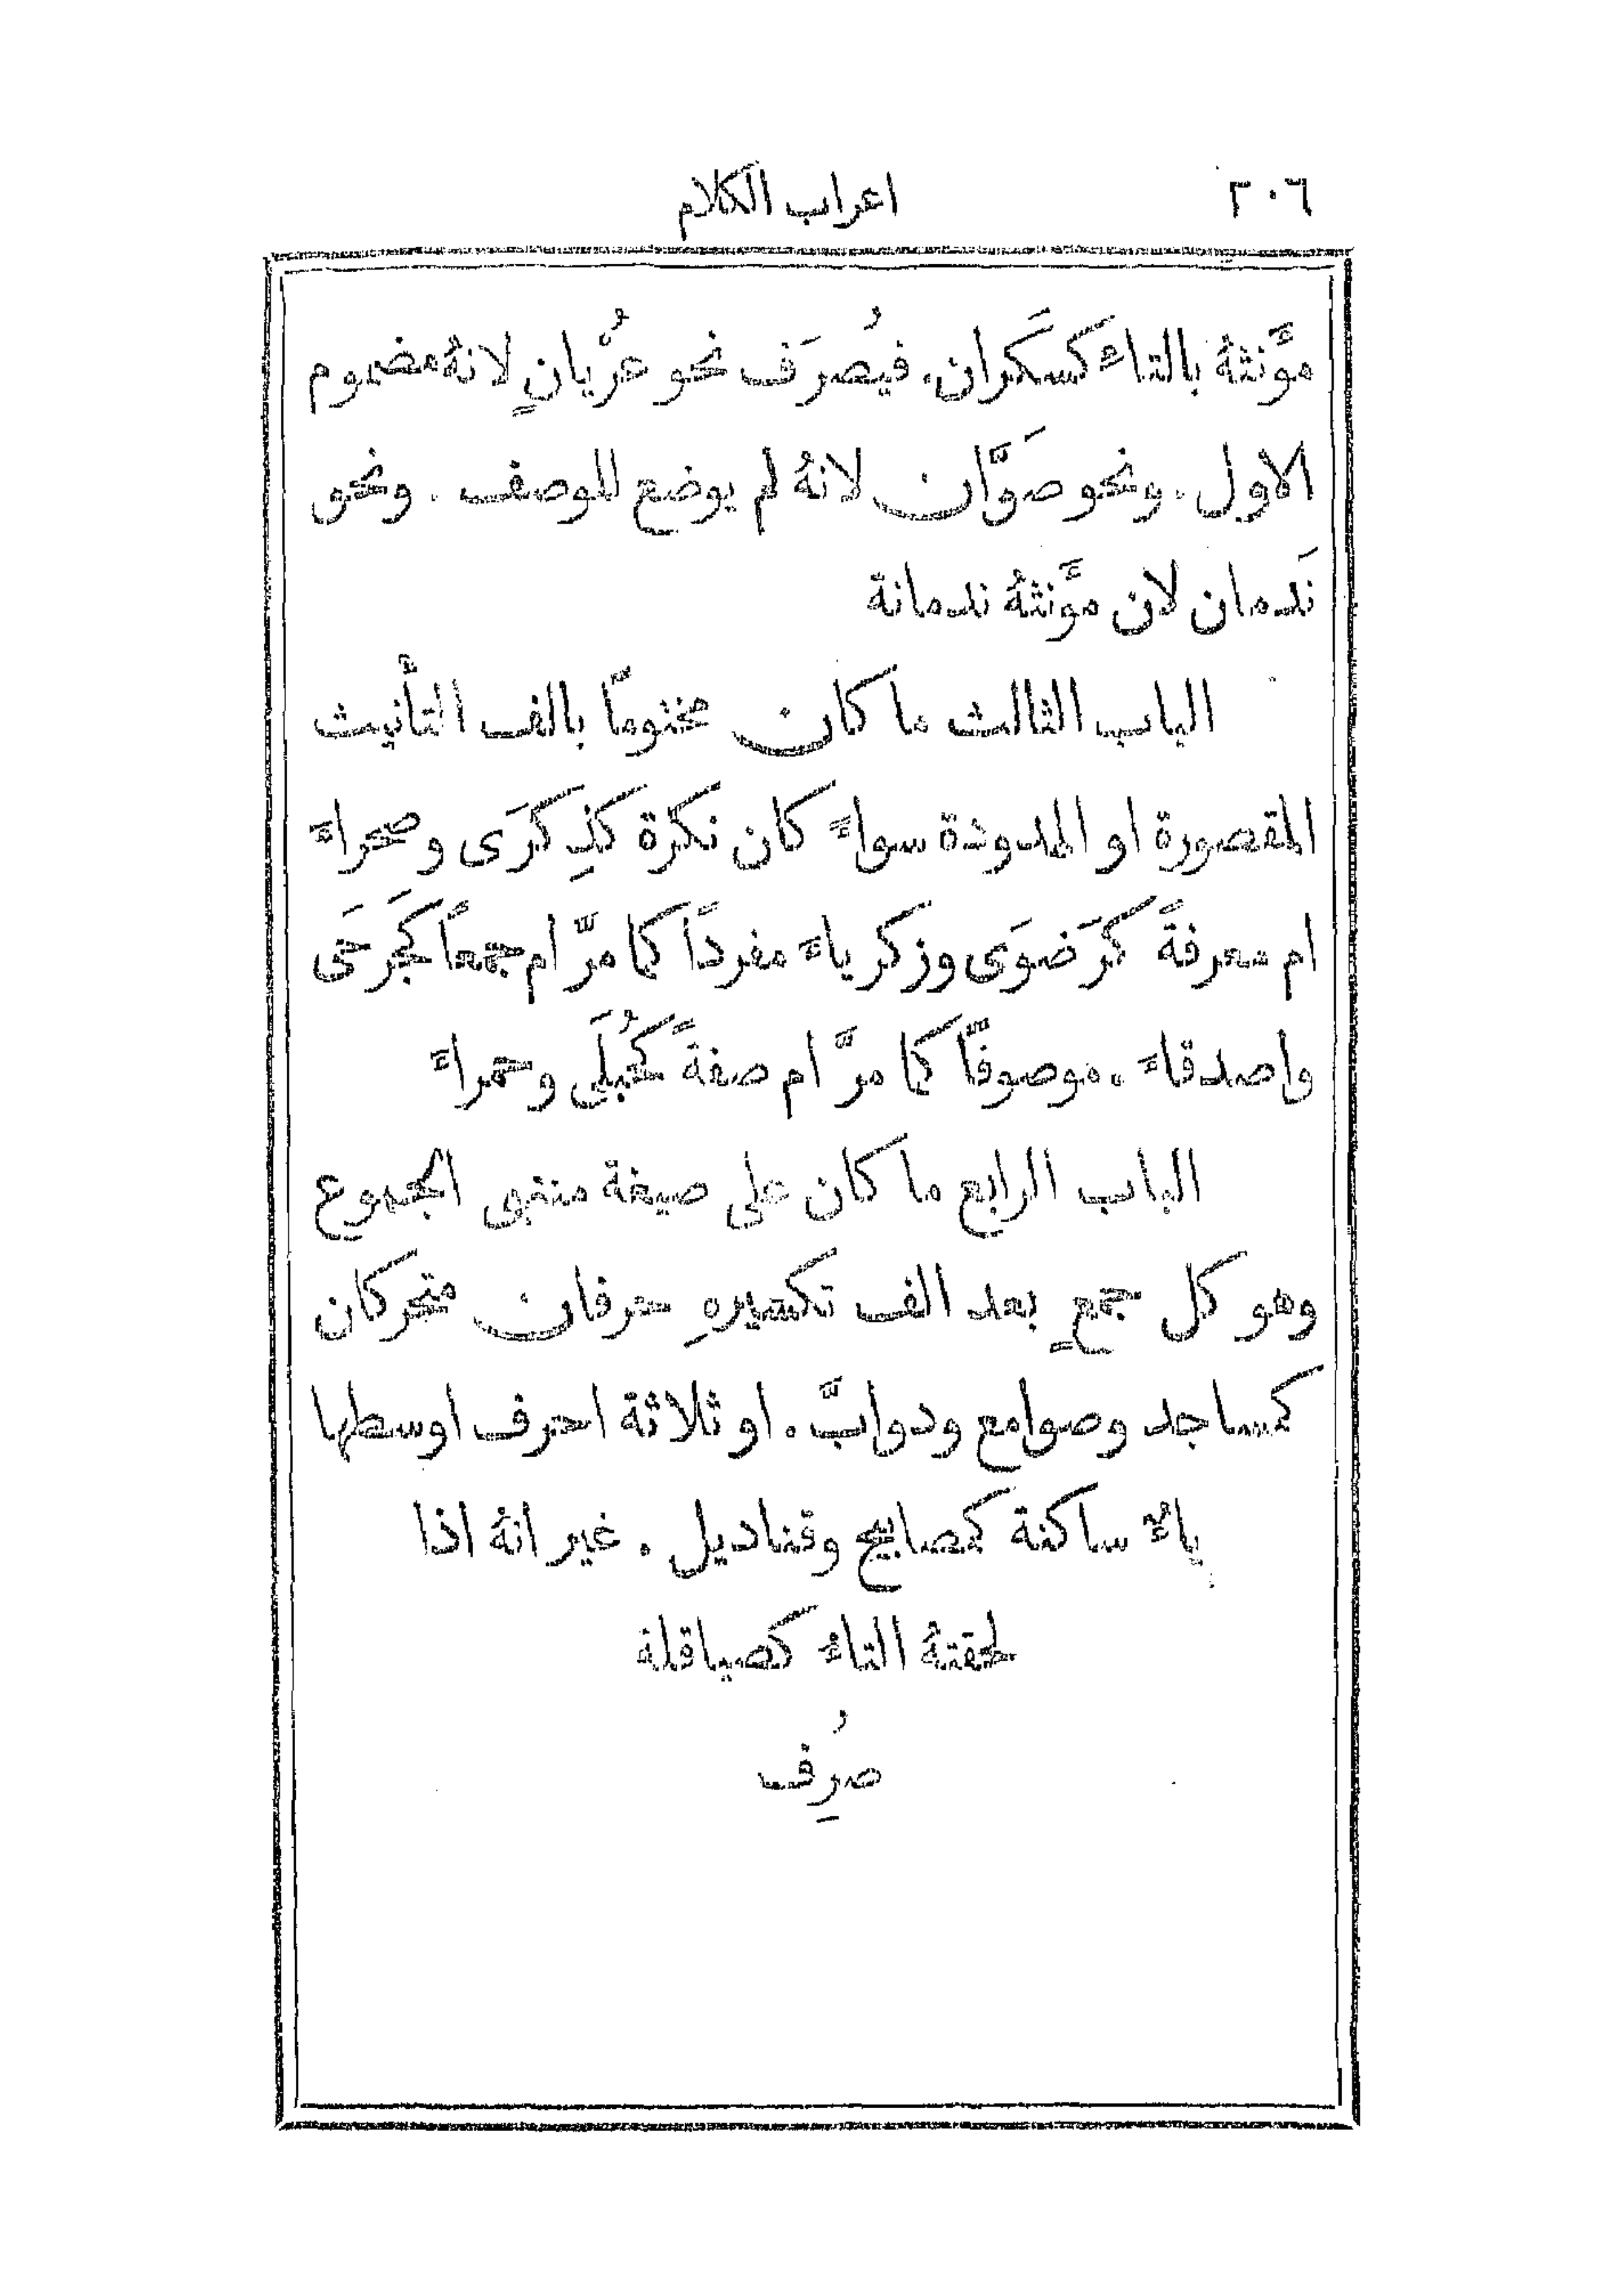 ٢٠٦ اعراب الكلام
مؤَنثهُ بالتاء كسَكران. فيُصرَف نحو عُرْيانٍ لانهُ مضموم
الاول. ونحو صَوَّان لانهُ لم يوضع للوصف. ونحو
نَدمان لان مؤَنثهُ ندمانة
الباب الثالث ما كان مختومًا بالف التأنيث
المقصورة او الممدودة سواءً كان نكرة كذِكرَى وصحراءَ
ام معرفةً كرَضوَى وزكرياءَ مفردًا كما مرَّ ام جمعًا كجَرحَى
واصدقاءَ. موصوفًا كما مرَّ ام صفةً كحُبلَى وحمراءَ
الباب الرابع ما كان على صيغة منتهى الجموع
وهو كل جمعٍ بعد الف تكسيرهِ حرفان متحركان
كمساجد وصوامع ودوابَّ. او ثلاثة احرف اوسطها
ياءٌ ساكنة كمصابيح وقناديل. غير انهُ اذا
لحقتهُ التاءُ كصياقلة
صُرِف